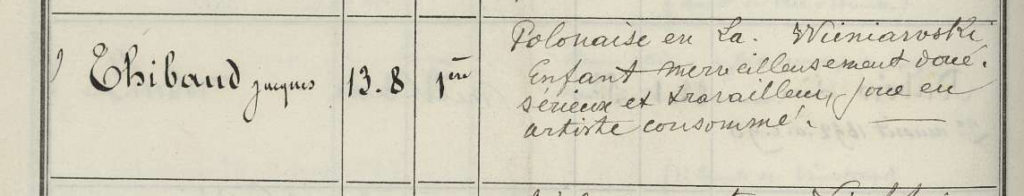 Thibaud Jacques 13.8 1ère Polonaise en La. Wieniawski
Enfant merveilleusement doué.
sérieux et travailleur, joue en
artiste consommé.